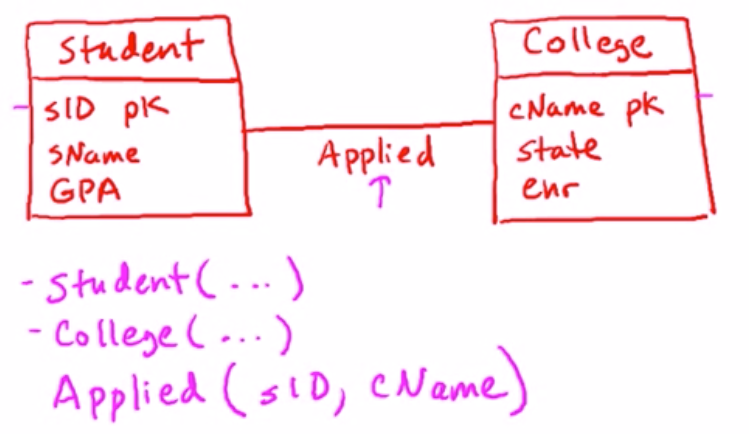 Student
sID pk
sName
GPA
Applied
College
cName pk
state
enr
- Student(...)
- College(...)
Applied(sID, cName)